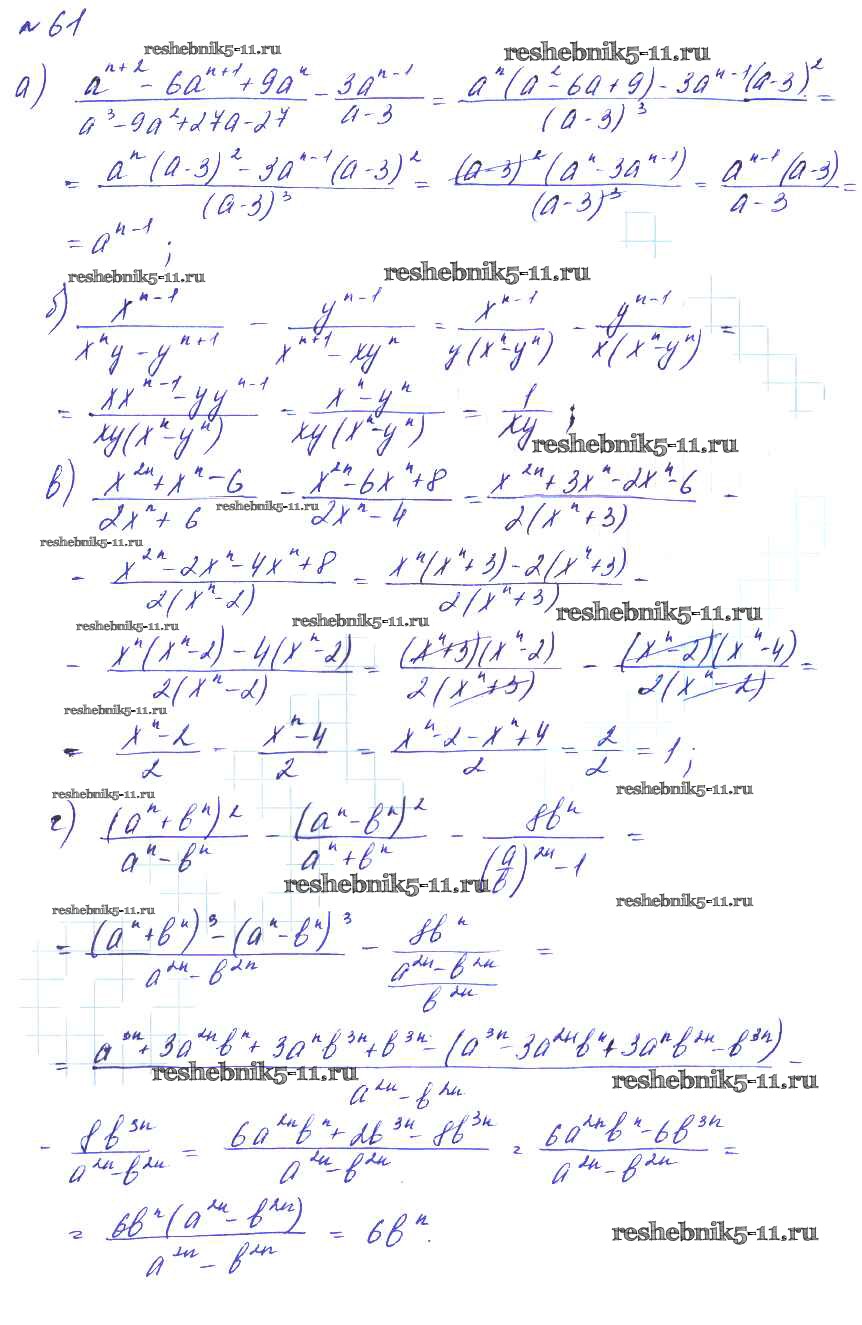 № 61
reshebnik5-11.ru reshebnik5-11.ru
а) (a^{n+2} - 6a^{n+1} + 9a^n)/(a^3 - 9a^2 + 27a - 27) - 3a^{n-1}/(a-3) = (a^n(a^2 - 6a + 9) - 3a^{n-1}(a-3)^2)/(a-3)^3 =
= (a^n(a-3)^2 - 3a^{n-1}(a-3)^2)/(a-3)^3 = ((a-3)^2(a^n - 3a^{n-1}))/(a-3)^3 = (a^{n-1}(a-3))/(a-3) =
= a^{n-1};
reshebnik5-11.ru reshebnik5-11.ru
б) x^{n-1}/(x^n y - y^{n+1}) - y^{n-1}/(x^{n+1} - xy^n) = x^{n-1}/(y(x^n - y^n)) - y^{n-1}/(x(x^n - y^n)) =
= (xx^{n-1} - yy^{n-1})/(xy(x^n - y^n)) = (x^n - y^n)/(xy(x^n - y^n)) = 1/(xy);
reshebnik5-11.ru
в) (x^{2n} + x^n - 6)/(2x^n + 6) - (x^{2n} - 6x^n + 8)/(2x^n - 4) = (x^{2n} + 3x^n - 2x^n - 6)/(2(x^n + 3)) -
reshebnik5-11.ru
reshebnik5-11.ru
- (x^{2n} - 2x^n - 4x^n + 8)/(2(x^n - 2)) = (x^n(x^n + 3) - 2(x^n + 3))/(2(x^n + 3)) -
reshebnik5-11.ru reshebnik5-11.ru reshebnik5-11.ru
- (x^n(x^n - 2) - 4(x^n - 2))/(2(x^n - 2)) = ((x^n + 3)(x^n - 2))/(2(x^n + 3)) - ((x^n - 2)(x^n - 4))/(2(x^n - 2)) =
reshebnik5-11.ru
= (x^n - 2)/2 - (x^n - 4)/2 = (x^n - 2 - x^n + 4)/2 = 2/2 = 1;
reshebnik5-11.ru reshebnik5-11.ru
г) (a^n + b^n)^2/(a^n - b^n) - (a^n - b^n)^2/(a^n + b^n) - 8b^n/((a/b)^{2n} - 1) =
reshebnik5-11.ru
reshebnik5-11.ru reshebnik5-11.ru
= ((a^n + b^n)^3 - (a^n - b^n)^3)/(a^{2n} - b^{2n}) - 8b^n/((a^{2n} - b^{2n})/b^{2n}) =
= (a^{3n} + 3a^{2n}b^n + 3a^n b^{3n} + b^{3n} - (a^{3n} - 3a^{2n}b^n + 3a^n b^{2n} - b^{3n}))/(a^{2n} - b^{2n}) -
reshebnik5-11.ru reshebnik5-11.ru
- 8b^{3n}/(a^{2n} - b^{2n}) = (6a^{2n}b^n + 2b^{3n} - 8b^{3n})/(a^{2n} - b^{2n}) = (6a^{2n}b^n - 6b^{3n})/(a^{2n} - b^{2n}) =
= (6b^n(a^{2n} - b^{2n}))/(a^{2n} - b^{2n}) = 6b^n.
reshebnik5-11.ru